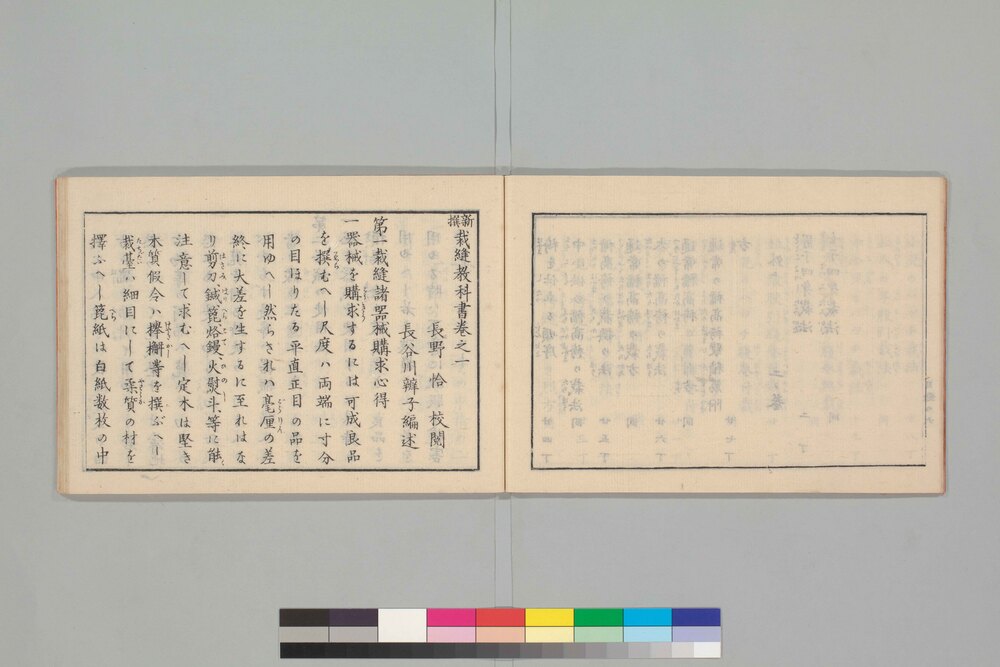 新撰裁縫教科書巻之一
長野恰校閲
長谷川辦子編述
第一裁縫諸器械購求心得
一器械を購求するには可成良品
を撰むへし尺度ハ両端に寸分
の目ほりたる平直正目の品を
用ゆへし然らされハ毫厘の差
終に大差を生するに至れはな
り剪刀、鍼、箆、烙鏝、火熨斗、等に能
注意して求むへし定木は堅き
木質假令ハ欅、檞等を撰ぶへし
裁臺ハ細目にして柔質の材を
擇ふへし箆紙は白紙数枚の中